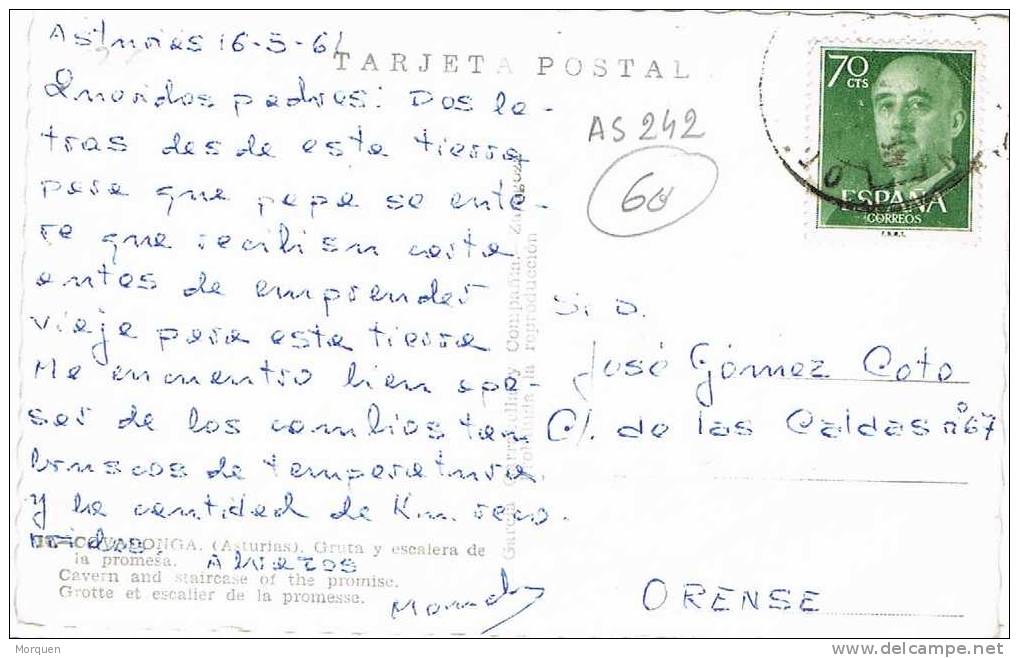 Asturias 16-5-61
TARJETA POSTAL
Queridos padres: Dos le-
tras desde esta tierra
para que papa se ente-
re que recibi su carta
antes de emprender
viaje para esta tierra
Me encuentro bien ape-
sar de los cambios tan
bruscos de temperatura.
y la cantidad de Km. reco-
rridos.
Abrazos
AS 242
60
70
CTS
ESPAÑA
CORREOS
F.N.M.T.
García Garrabella y Compañía.- Zaragoza
Prohibida la reproducción
Sr. D.
José Gómez Coto
C/. de las Caldas nº 67
ORENSE
COVADONGA. (Asturias). Gruta y escalera de
la promesa.
Cavern and staircase of the promise.
Grotte et escalier de la promesse.
Morquen
http://www.delcampe.net